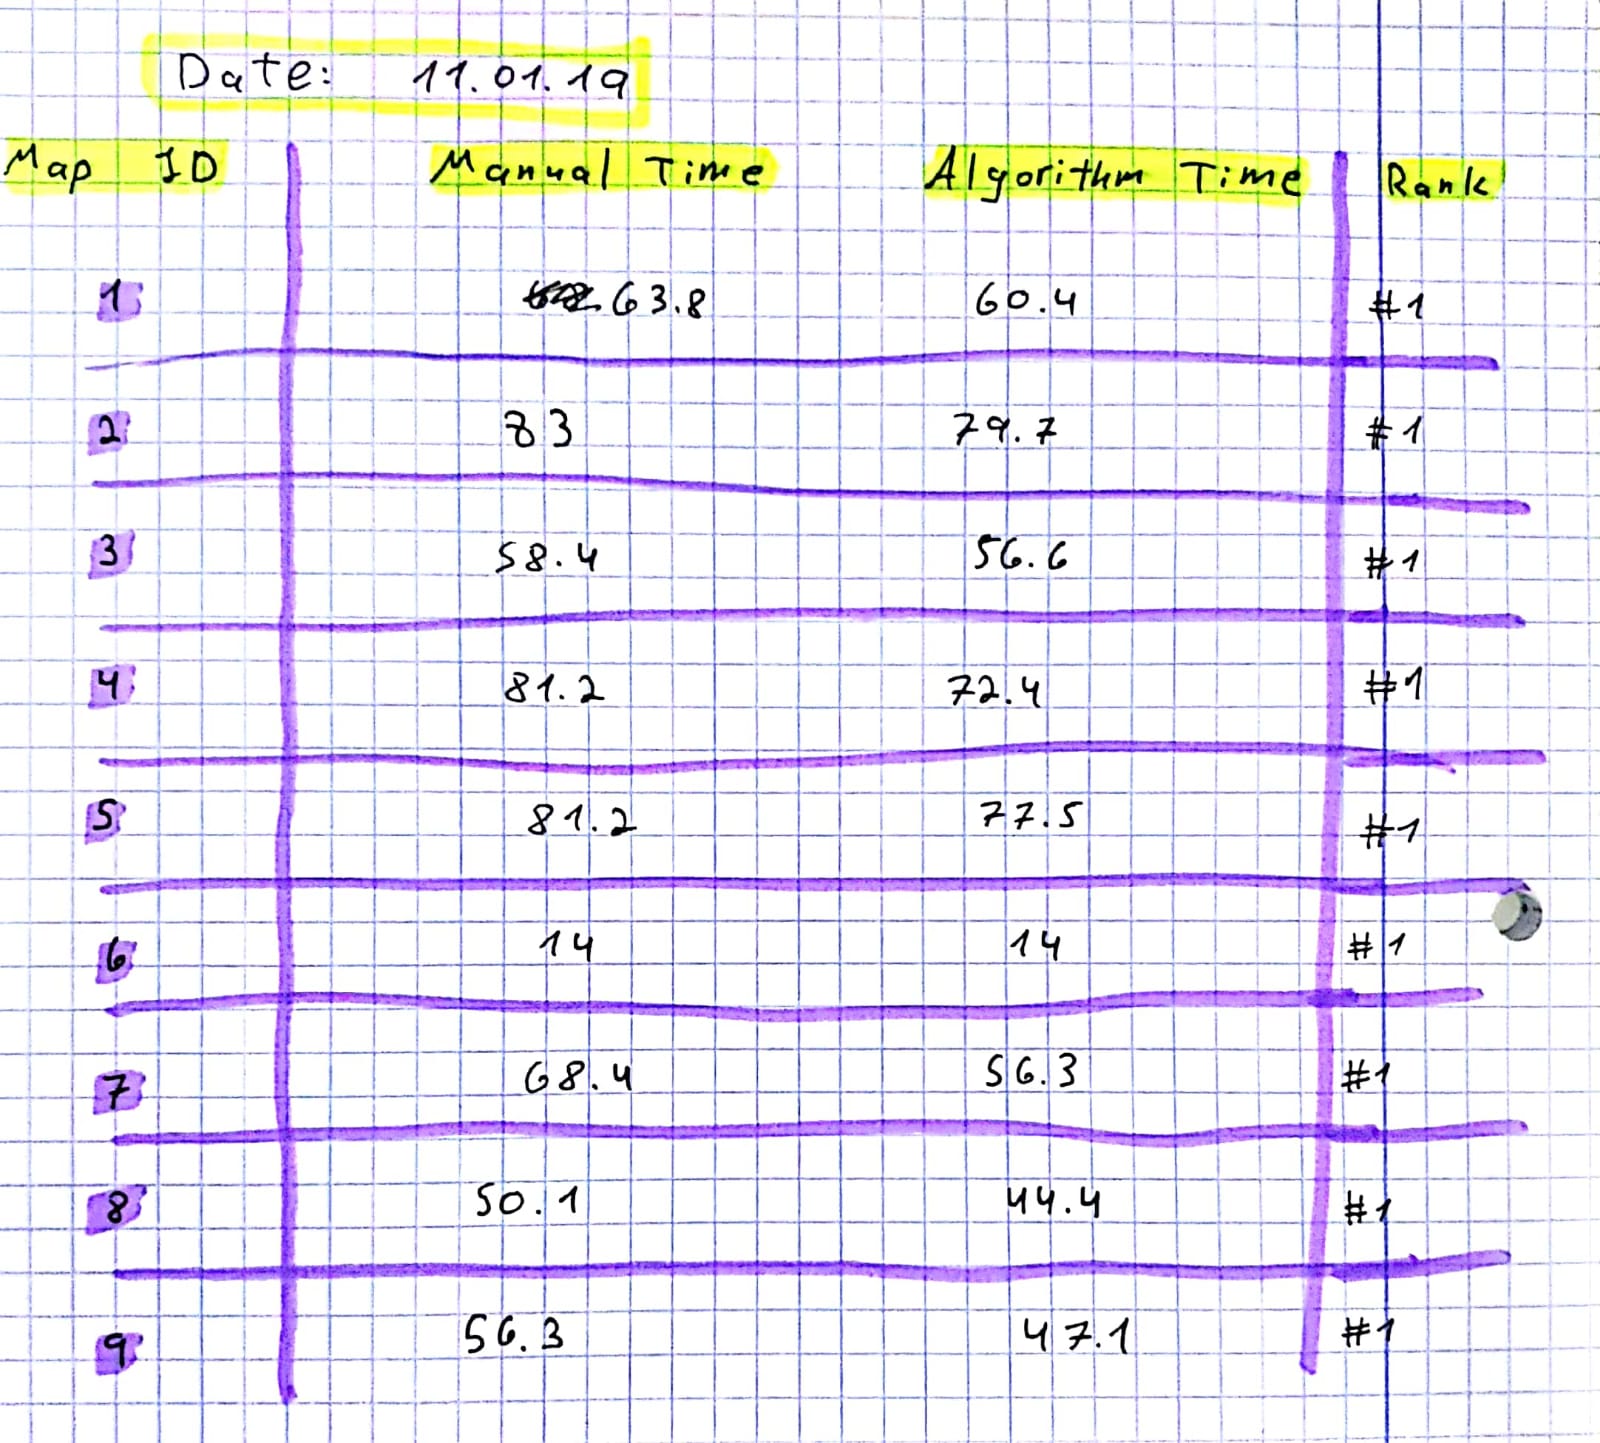 Date: 11.01.19
Map ID Manual Time Algorithm Time Rank
1 63.8 60.4 #1
2 83 79.7 #1
3 58.4 56.6 #1
4 81.2 72.4 #1
5 81.2 77.5 #1
6 14 14 #1
7 68.4 56.3 #1
8 50.1 44.4 #1
9 56.3 47.1 #1